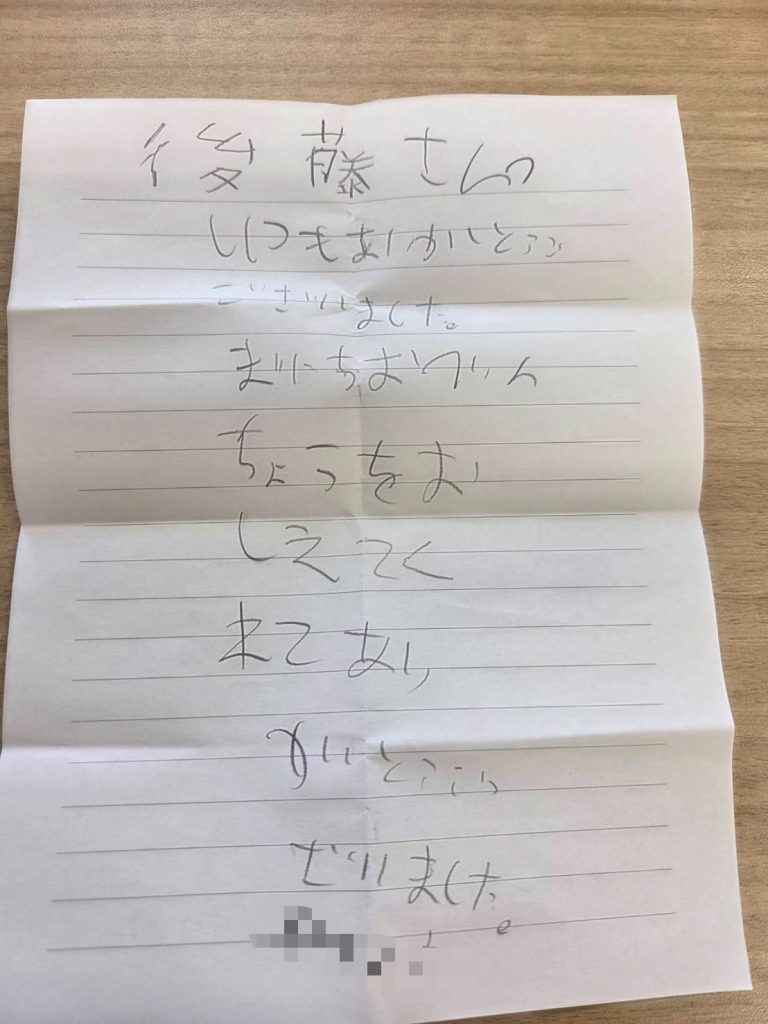 後藤さんへ
いつもありがとうご
ございました。
まいにちおべん
ちょうをお
しえてく
れてあり
がとうご
ざいました。